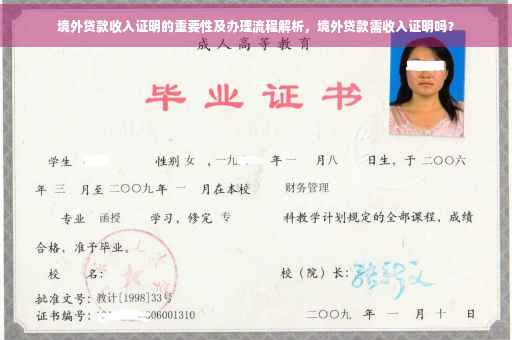 境外贷款收入证明的重要性及办理流程解析，境外贷款需收入证明吗？
成人高等教育
毕业证书
学生 性别 女 ，一九 年 一 月八 日生，于 二〇〇六
年 三 月至 二〇〇九 年 一 月在本校 财务管理
专业 函授 学习，修完 专 科教学计划规定的全部课程，成绩
合格，准予毕业。
校 名： 校（院）长：
批准文号：教计[1998]33号
证书编号： 06001310 二〇〇九 年 一 月 十 日